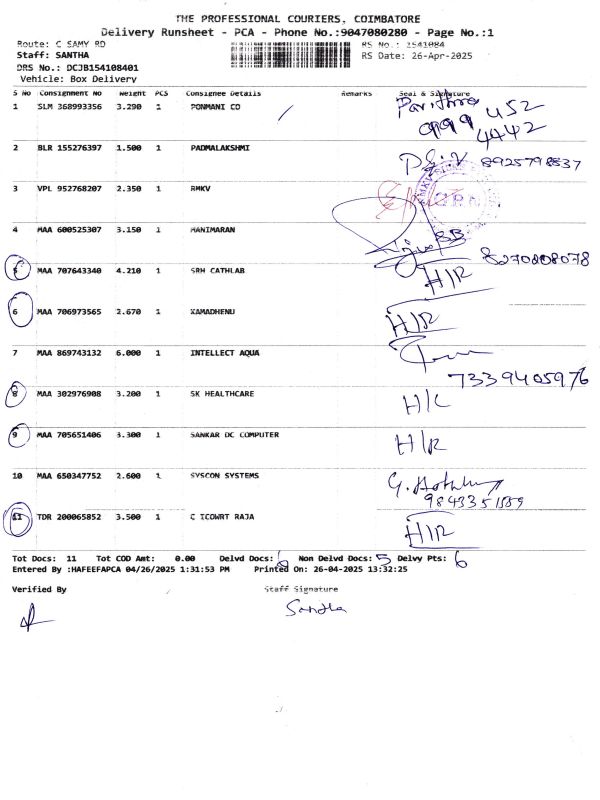 THE PROFESSIONAL COURIERS, COIMBATORE
Delivery Runsheet - PCA - Phone No.:9047080280 - Page No.:1
Route: C SAMY RD RS No.: 1541084
Staff: SANTHA RS Date: 26-Apr-2025
DRS No.: DCJB154108401
Vehicle: Box Delivery
S No Consignment No Weight PCS Consignee Details Remarks Seal & Signature
1 SLM 368993356 3.290 1 PONMANI CO Pavithra
9994452
4442
2 BLR 155276397 1.500 1 PADMALAKSHMI 8925798837
3 VPL 952768207 2.350 1 RMKV
4 MAA 600525307 3.150 1 MANIMARAN
8270808078
5 MAA 707643340 4.210 1 SRH CATHLAB H/R
6 MAA 706973565 2.670 1 KAMADHENU H/R
7 MAA 869743132 6.000 1 INTELLECT AQUA
7339405976
8 MAA 302976908 3.200 1 SK HEALTHCARE H/L
9 MAA 705651406 3.300 1 SANKAR DC COMPUTER H/R
10 MAA 650347752 2.600 1 SYSCON SYSTEMS G.
9843351559
11 TDR 200065852 3.500 1 C ICOWRT RAJA H/R
Tot Docs: 11 Tot COD Amt: 0.00 Delvd Docs: 6 Non Delvd Docs: 5 Delvy Pts: 6
Entered By :HAFEEFAPCA 04/26/2025 1:31:53 PM Printed On: 26-04-2025 13:32:25
Verified By Staff Signature
Santha